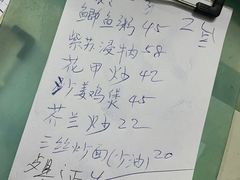 鲫鱼粥45
紫苏浸牛肉58
花甲炒42
沙姜鸡煲45
芥兰炒22
三丝炒面(少油)20